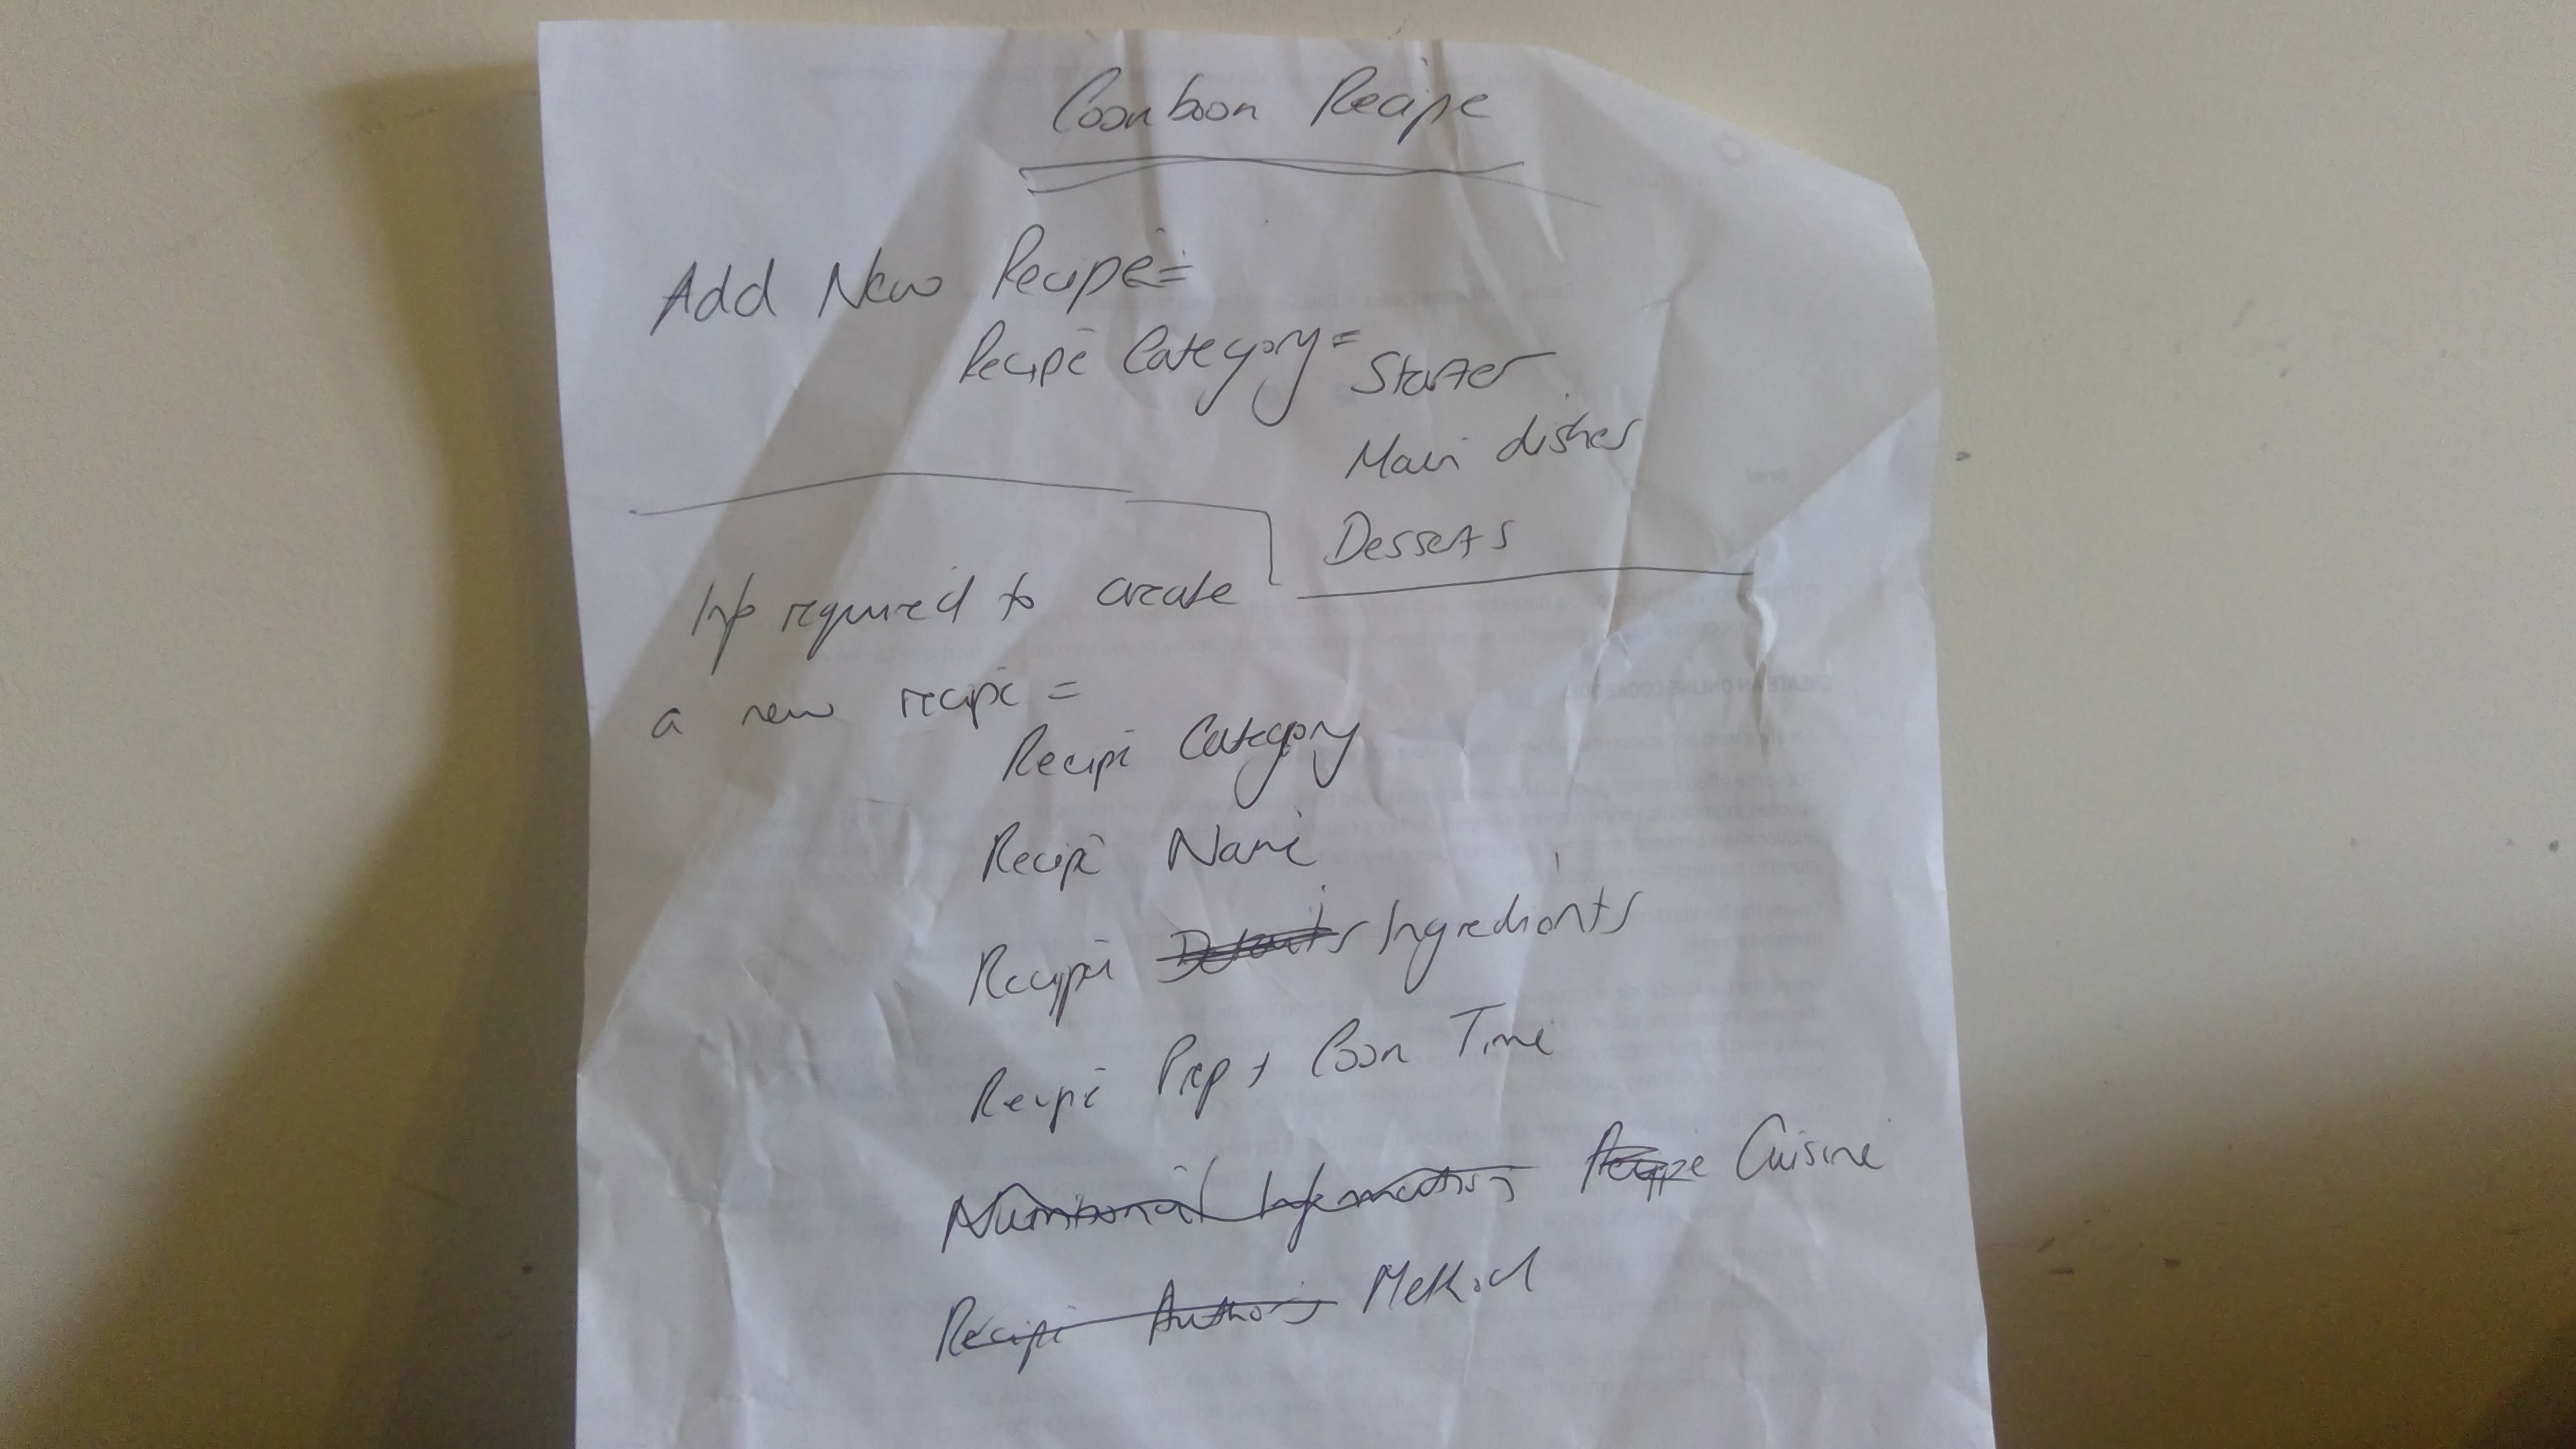 Cookbook Recipe
Add New Recipe=
Recipe Category=
Starter
Main dishes
Desserts
Info required to create
a new recipe =
Recipe Category
Recipe Name
Recipe Ingredients
Recipe Prep + Cook Time
Nutritional Information Recipe Cuisine
Recipe Author Method